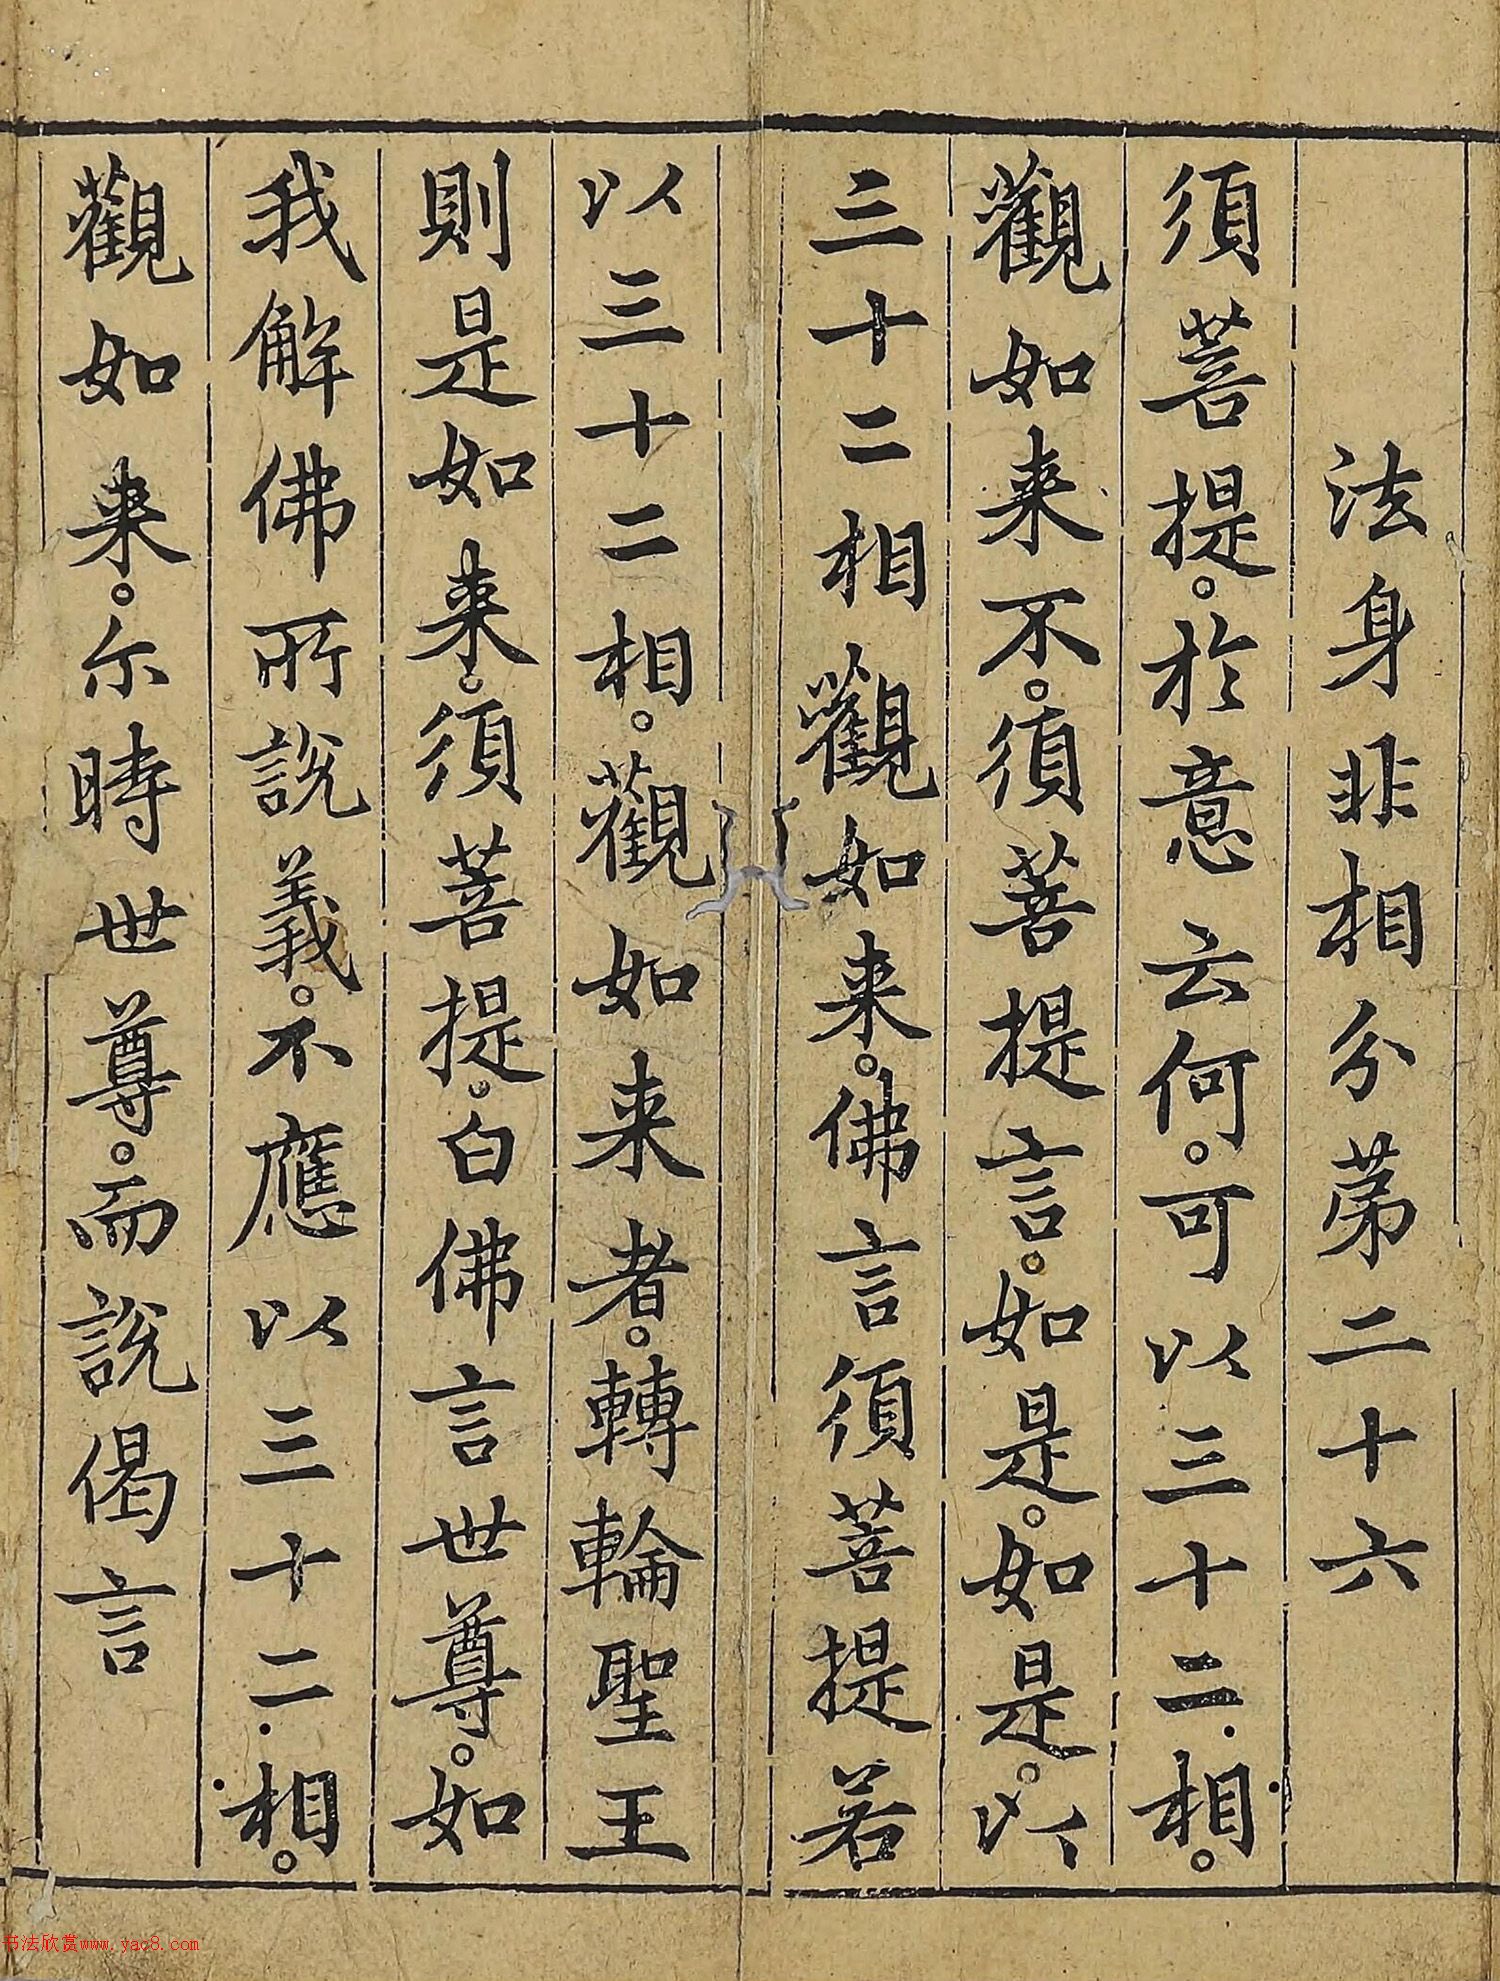 法身非相分苐二十六
須菩提。於意云何。可以三十二相。
觀如来不。須菩提言。如是。如是。以
三十二相觀如来。佛言須菩提若
以三十二相。觀如来者。轉輪聖王
則是如来。須菩提。白佛言世尊。如
我解佛所說義。不應以三十二相。
觀如来。尓時世尊。而說偈言
书法欣赏www.yac8.com